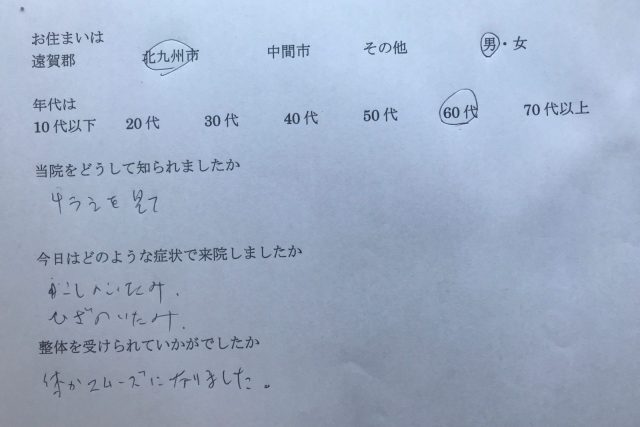 お住まいは
遠賀郡 北九州市 中間市 その他 男・女
年代は
10代以下 20代 30代 40代 50代 60代 70代以上
当院をどうして知られましたか
チラシを見て
今日はどのような症状で来院しましたか
こしのいたみ、
ひざのいたみ、
整体を受けられていかがでしたか
体がスムーズになりました。